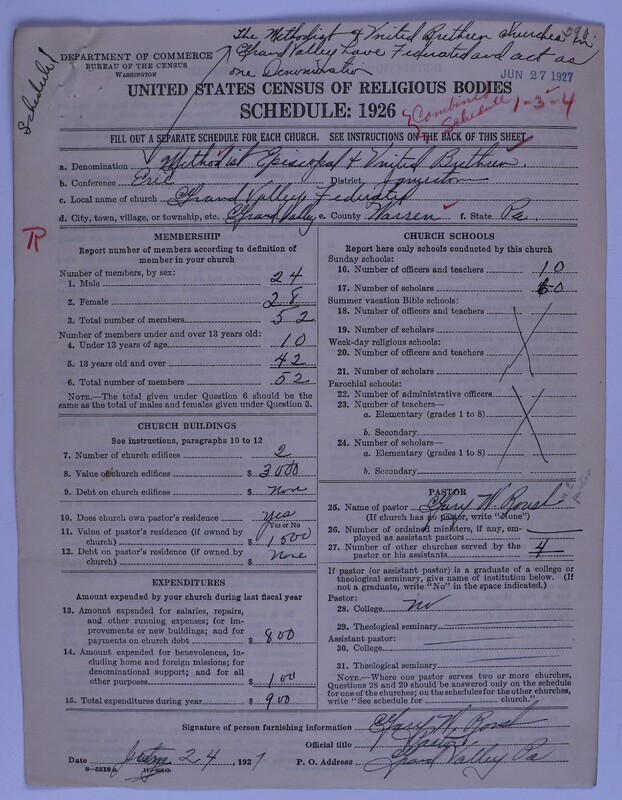 The Methodist & United Brethren Churches in 290
Grand Valley have Federated and act as
one Denomination
Schedule 1
DEPARTMENT OF COMMERCE
BUREAU OF THE CENSUS
WASHINGTON
JUN 27 1927
UNITED STATES CENSUS OF RELIGIOUS BODIES
SCHEDULE: 1926
Combined Schedule 1-3-4
FILL OUT A SEPARATE SCHEDULE FOR EACH CHURCH. SEE INSTRUCTIONS ON THE BACK OF THIS SHEET
a. Denomination Methodist Episcopal & United Brethren
b. Conference Erie District Jamestown
c. Local name of church Grand Valley Federated
d. City, town, village, or township, etc. Grand Valley e. County Warren f. State Pa.
R
MEMBERSHIP
Report number of members according to definition of
member in your church
Number of members, by sex:
1. Male 24
2. Female 28
3. Total number of members 52
Number of members under and over 13 years old:
4. Under 13 years of age 10
5. 13 years old and over 42
6. Total number of members 52
NOTE.—The total given under Question 6 should be the
same as the total of males and females given under Question 3.
CHURCH BUILDINGS
See instructions, paragraphs 10 to 12
7. Number of church edifices 2
8. Value of church edifices $ 3000
9. Debt on church edifices $ None
10. Does church own pastor's residence yes
Yes or No
11. Value of pastor's residence (if owned by
church) $ 1,500
12. Debt on pastor's residence (if owned by
church) $ None
EXPENDITURES
Amount expended by your church during last fiscal year
13. Amount expended for salaries, repairs,
and other running expenses; for im-
provements or new buildings; and for
payments on church debt $ 800
14. Amount expended for benevolences, in-
cluding home and foreign missions; for
denominational support; and for all
other purposes $ 100
15. Total expenditures during year $ 900
CHURCH SCHOOLS
Report here only schools conducted by this church
Sunday schools:
16. Number of officers and teachers 10
17. Number of scholars 60
Summer vacation Bible schools:
18. Number of officers and teachers
19. Number of scholars
Week-day religious schools:
20. Number of officers and teachers
21. Number of scholars
Parochial schools:
22. Number of administrative officers
23. Number of teachers—
a. Elementary (grades 1 to 8)
b. Secondary
24. Number of scholars—
a. Elementary (grades 1 to 8)
b. Secondary
PASTOR
25. Name of pastor Gary W. Roush
(If church has no pastor, write "None")
26. Number of ordained ministers, if any, em-
ployed as assistant pastors
27. Number of other churches served by the
pastor or his assistants 4
If pastor (or assistant pastor) is a graduate of a college or
theological seminary, give name of institution below. (If
not a graduate, write "No" in the space indicated.)
Pastor:
28. College no
29. Theological seminary
Assistant pastor:
30. College
31. Theological seminary
NOTE.—Where one pastor serves two or more churches,
Questions 28 and 29 should be answered only on the schedule
for one of the churches; on the schedules for the other churches,
write "See schedule for church."
Signature of person furnishing information Gary W. Roush
Official title Pastor
Date June 24, 1927 P. O. Address Grand Valley Pa
8-5518a